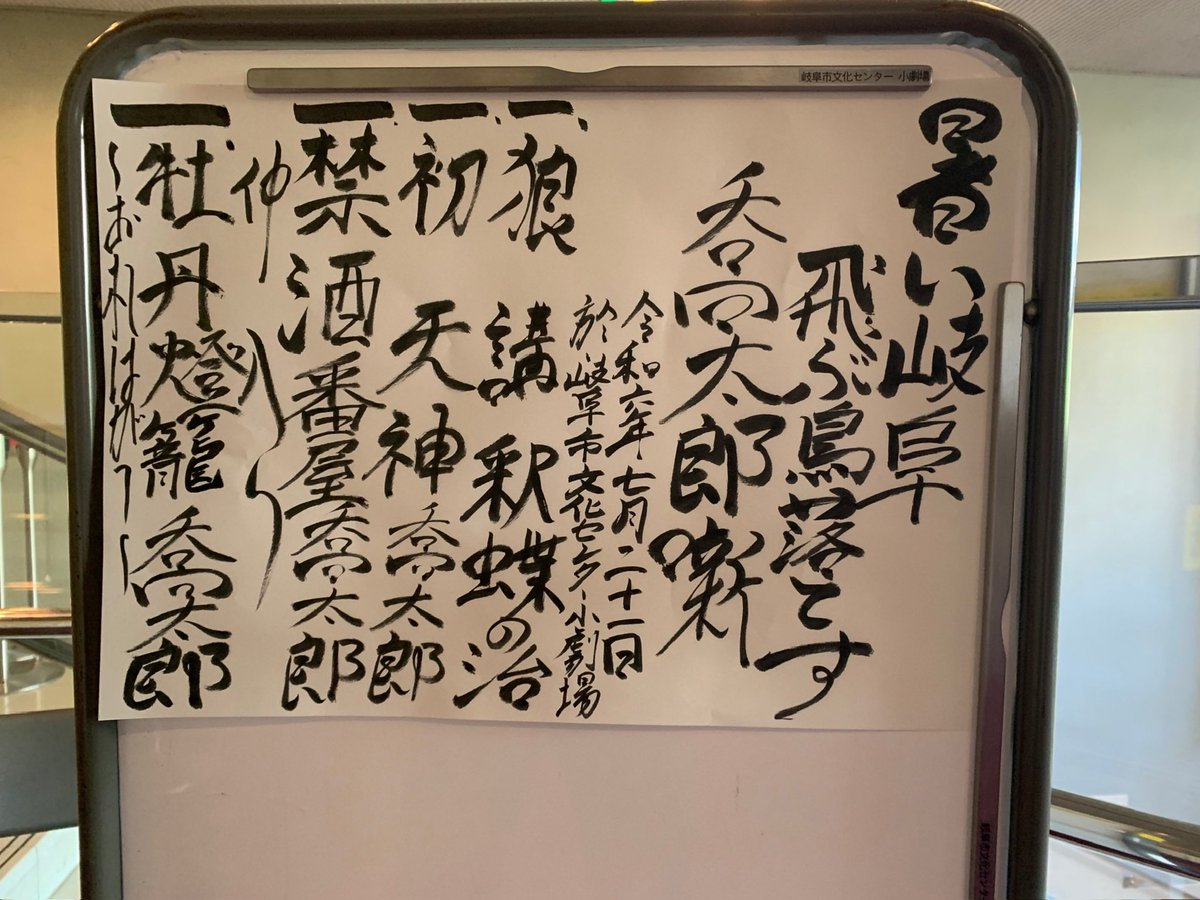 岐阜市文化センター 小劇場
暑い岐阜
飛ぶ鳥落とす
喬太郎噺
令和六年七月二十一日
於岐阜市文化センター小劇場
一、狼講釈 蝶の治
一、初天神 喬太郎
一、禁酒番屋 喬太郎
仲入り
一、牡丹燈籠 喬太郎
〜お札はがし〜
岐阜市文化センタ